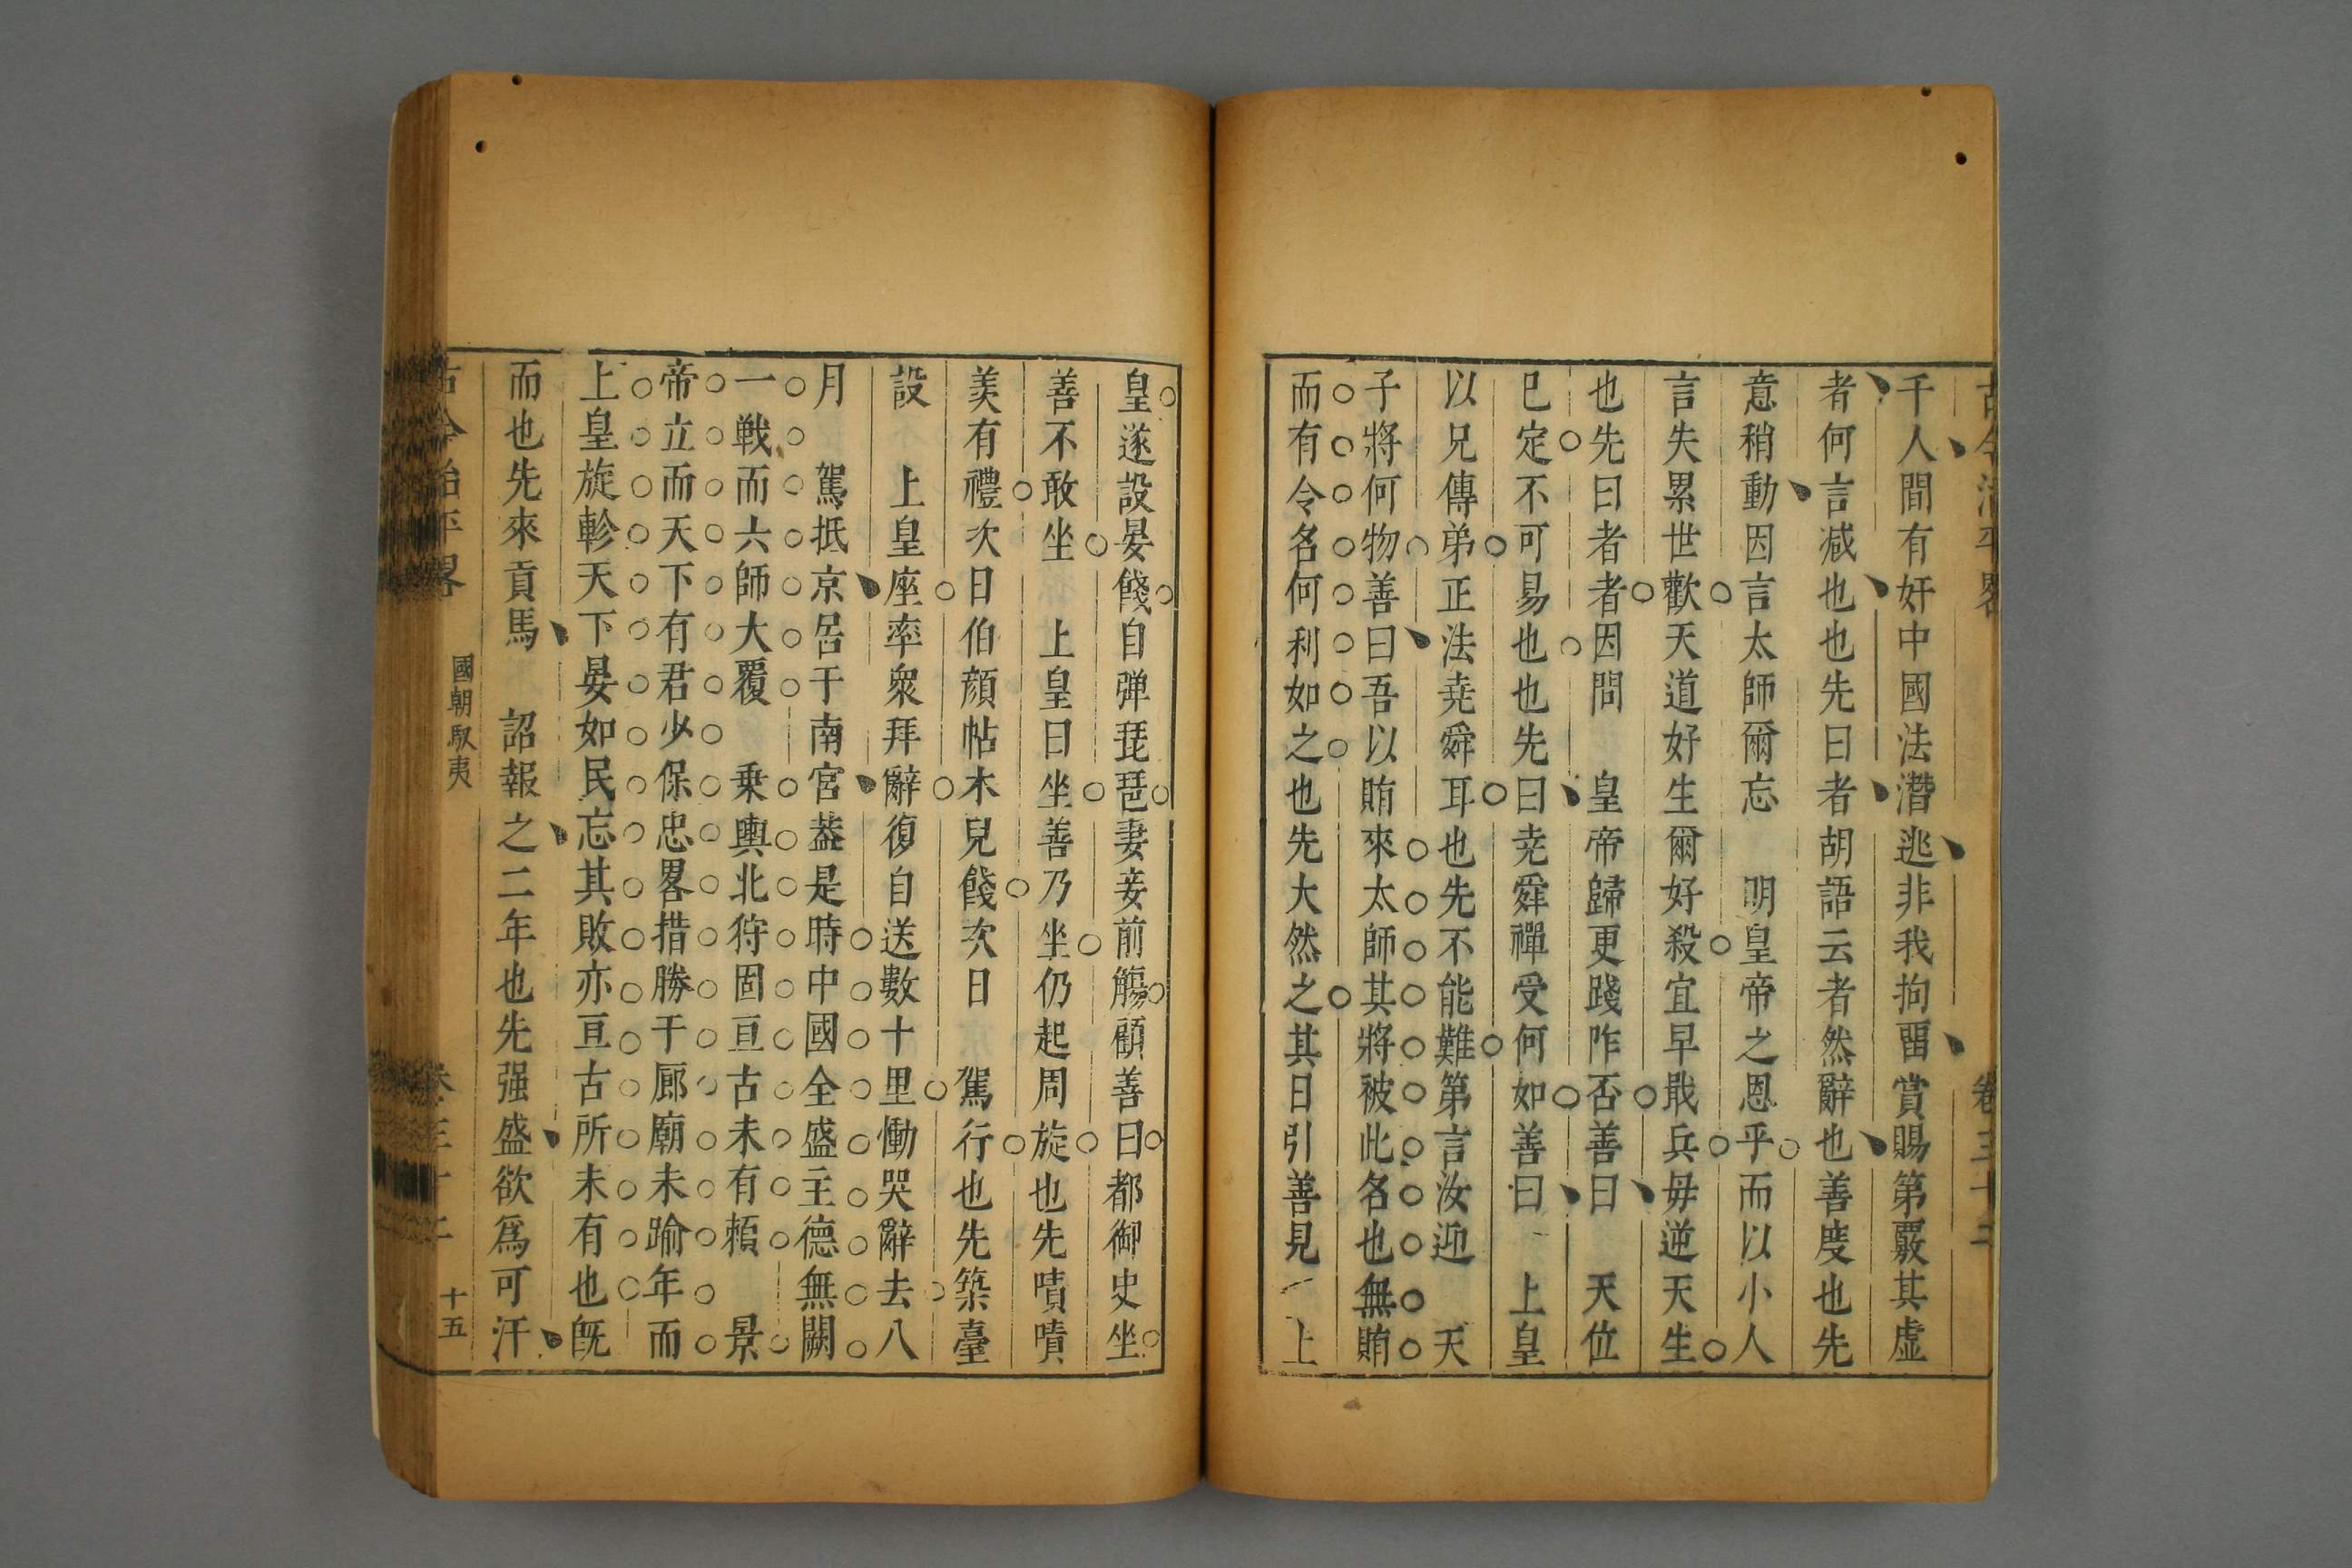 古今治平畧 卷三十三
千人間有奸中國法潛逃非我拘畱賞賜第覈其虛
者何言减也也先曰者胡語云者然辭也善度也先
意稍動因言太師爾忘 明皇帝之恩乎而以小人
言失累世歡天道好生爾好殺宜早戢兵毋逆天生
也先曰者者因問 皇帝歸更踐咋否善曰 天位
已定不可易也也先曰尭舜禪受何如善曰 上皇
以兄傳弟正法堯舜耳也先不能難第言汝迎 天
子將何物善曰吾以賄來太師其將被此名也無賄
而有令名何利如之也先大然之其日引善見 上
皇遂設晏餞自弹琵琶妻妾前觴顧善曰都御史坐
善不敢坐 上皇曰坐善乃坐仍起周旋也先嘖嘖
羙有禮次日伯顔帖木兒餞次日 駕行也先築臺
設 上皇座率衆拜辭復自送數十里慟哭辭去八
月 駕抵京居于南宮葢是時中國全盛主德無闕
一戰而六師大覆 乗輿北狩固亘古未有頼 景
帝立而天下有君少保忠畧措勝于廊廟未踰年而
上皇旋軫天下晏如民忘其敗亦亘古所未有也旣
而也先來貢馬 詔報之二年也先强盛欲爲可汗
古今治平畧 國朝馭夷 卷三十三 十五